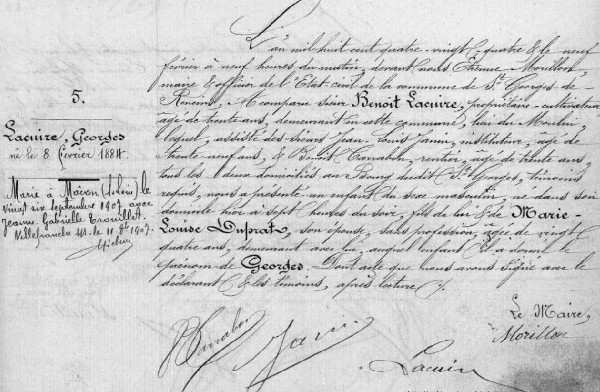 5.
Lacuire, Georges
né le 8 février 1884.
Marié à Mâcon (Saône) le
vingt six septembre 1907 avec
Jeanne Gabrielle Trouillet.
Villefranche le 11 8bre 1907.
L'an mil huit cent quatre-vingt-quatre & le neuf
février à neuf heures du matin, devant nous Etienne Morillon
maire & officier de l'Etat civil de la commune de St Georges de
Reneins, A comparu sieur Benoit Lacuire, propriétaire-cultivateur
âgé de trente ans, demeurant en cette commune, lieu du Moulin,
lequel, assisté des sieurs Jean-Louis Janin, instituteur, âgé de
trente-neuf ans, & Benoit Carrabon, rentier, âgé de trente ans,
tous les deux domiciliés au Bourg dudit St Georges, témoins
requis, nous a présenté un enfant du sexe masculin, né dans son
domicile hier à sept heures du soir, fils de lui & de Marie-
Louise Duprat, son épouse, sans profession, âgée de vingt
quatre ans, demeurant avec lui, auquel enfant il a donné le
prénom de Georges. Dont acte que nous avons signé avec le
déclarant & les témoins, après lecture.
Le Maire,
Morillon
Carrabon
Janin
Lacuire